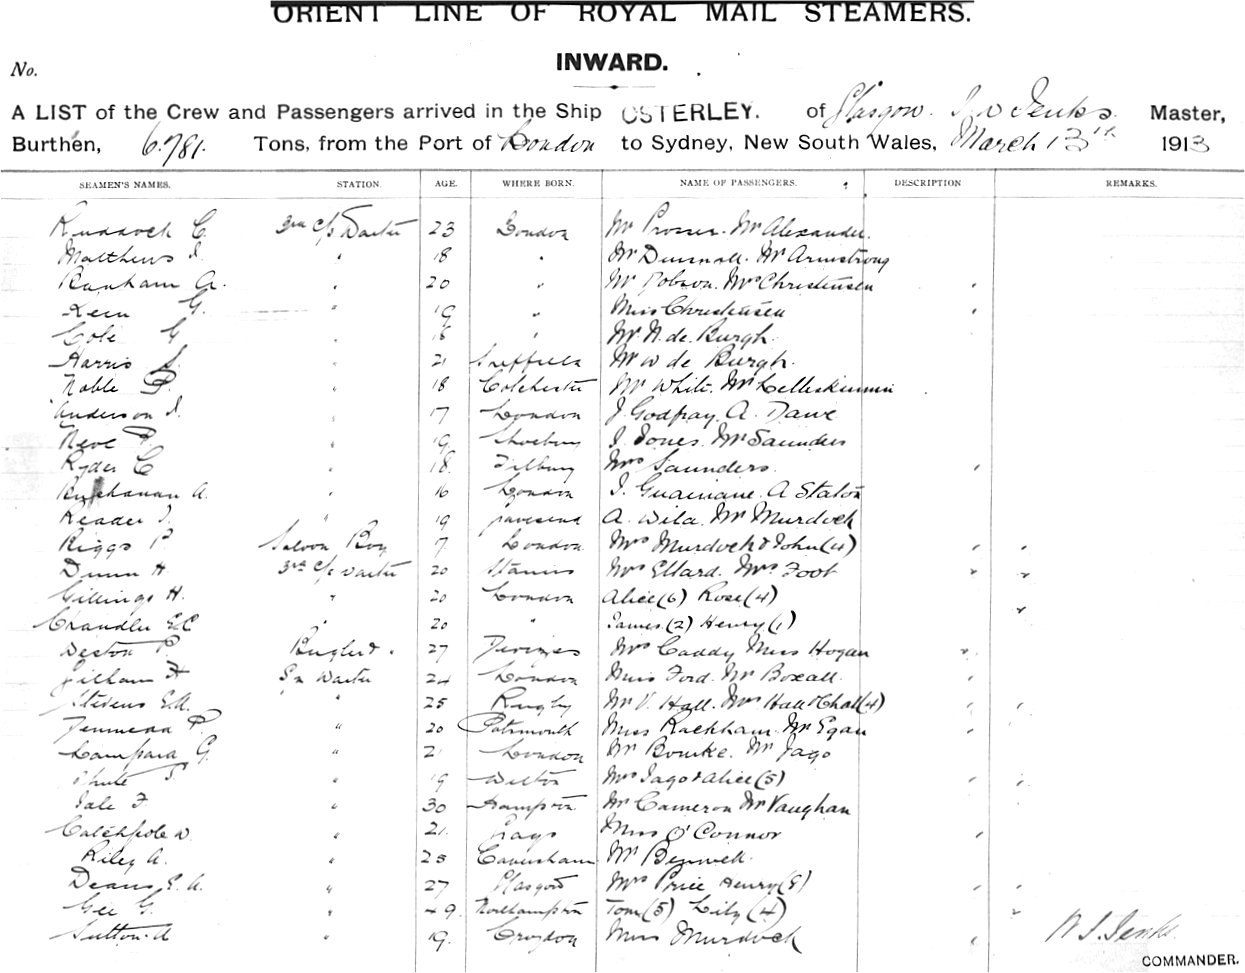 ORIENT LINE OF ROYAL MAIL STEAMERS.
INWARD.
No.
A LIST of the Crew and Passengers arrived in the Ship OSTERLEY. of Glasgow. Jenks. Master,
Burthen, 6781. Tons, from the Port of London to Sydney, New South Wales, March 13th 1913
SEAMEN'S NAMES. STATION. AGE. WHERE BORN. NAME OF PASSENGERS. DESCRIPTION REMARKS.
Ruddock C. 3rd c/s Waiter 23 London Mr Prosser. Mr Alexander.
Matthews J. " 18 " Mr Dunnall. Mr Armstrong
Banham A. " 20 " Mr Dobson. Mrs Christensen
Kein G. " 19 " Miss Christensen
Cole G " " Mr N. de Burgh.
Harris S. " 21 Mr W de Burgh.
Noble P. " 18 Colchester Mr White. Mr
Anderson J. " 17 London J. Godfray. A. Dawe
Neve P. " 19 Shoebury J. Jones. Mr Saunders
Ryder C " 18. Tilbury Mrs Saunders.
Buchanan A. " 16 London J. A Staton
Reader J. " 19 Gravesend A. Wila. Mr Murdoch
Riggs P. Saloon Boy 7 London Mrs Murdoch & John (4)
Dunn H 3rd c/s Waiter 20 Staines Mrs Ellard. Mrs Foot
Gillings H. " 20 London Alice (6) Rose (4)
Chandler E.C " 20 " James (2) Henry (1)
Deston P. Bugler 27 Devizes Mrs Caddy Miss Hogan
Gilham H Sn Waiter 24 London Miss Ford. Mr Boxall.
Stevens E.A. " 25 Rugby Mr V. Hall. Mrs Hall & Chas (4)
P. " 20 Portsmouth Miss Rackham. Mr Egan
G. " 21 London Mr Bourke. Mr Jago
White " 19 Wilton Mrs Jago & Alice (5)
F. " 30 Hampton Mr Cameron Mr Vaughan
Catchpole W. " 21. Grays Miss O'Connor
Riley A. " 25 Caversham Mr Bennell.
Deans E.A. " 27 Glasgow Mrs Price Henry (8)
Gee G. " 49. Northampton Tom (5) Lily (4)
Sutton A " 19. Croydon Miss Murdoch
Jenks.
COMMANDER.